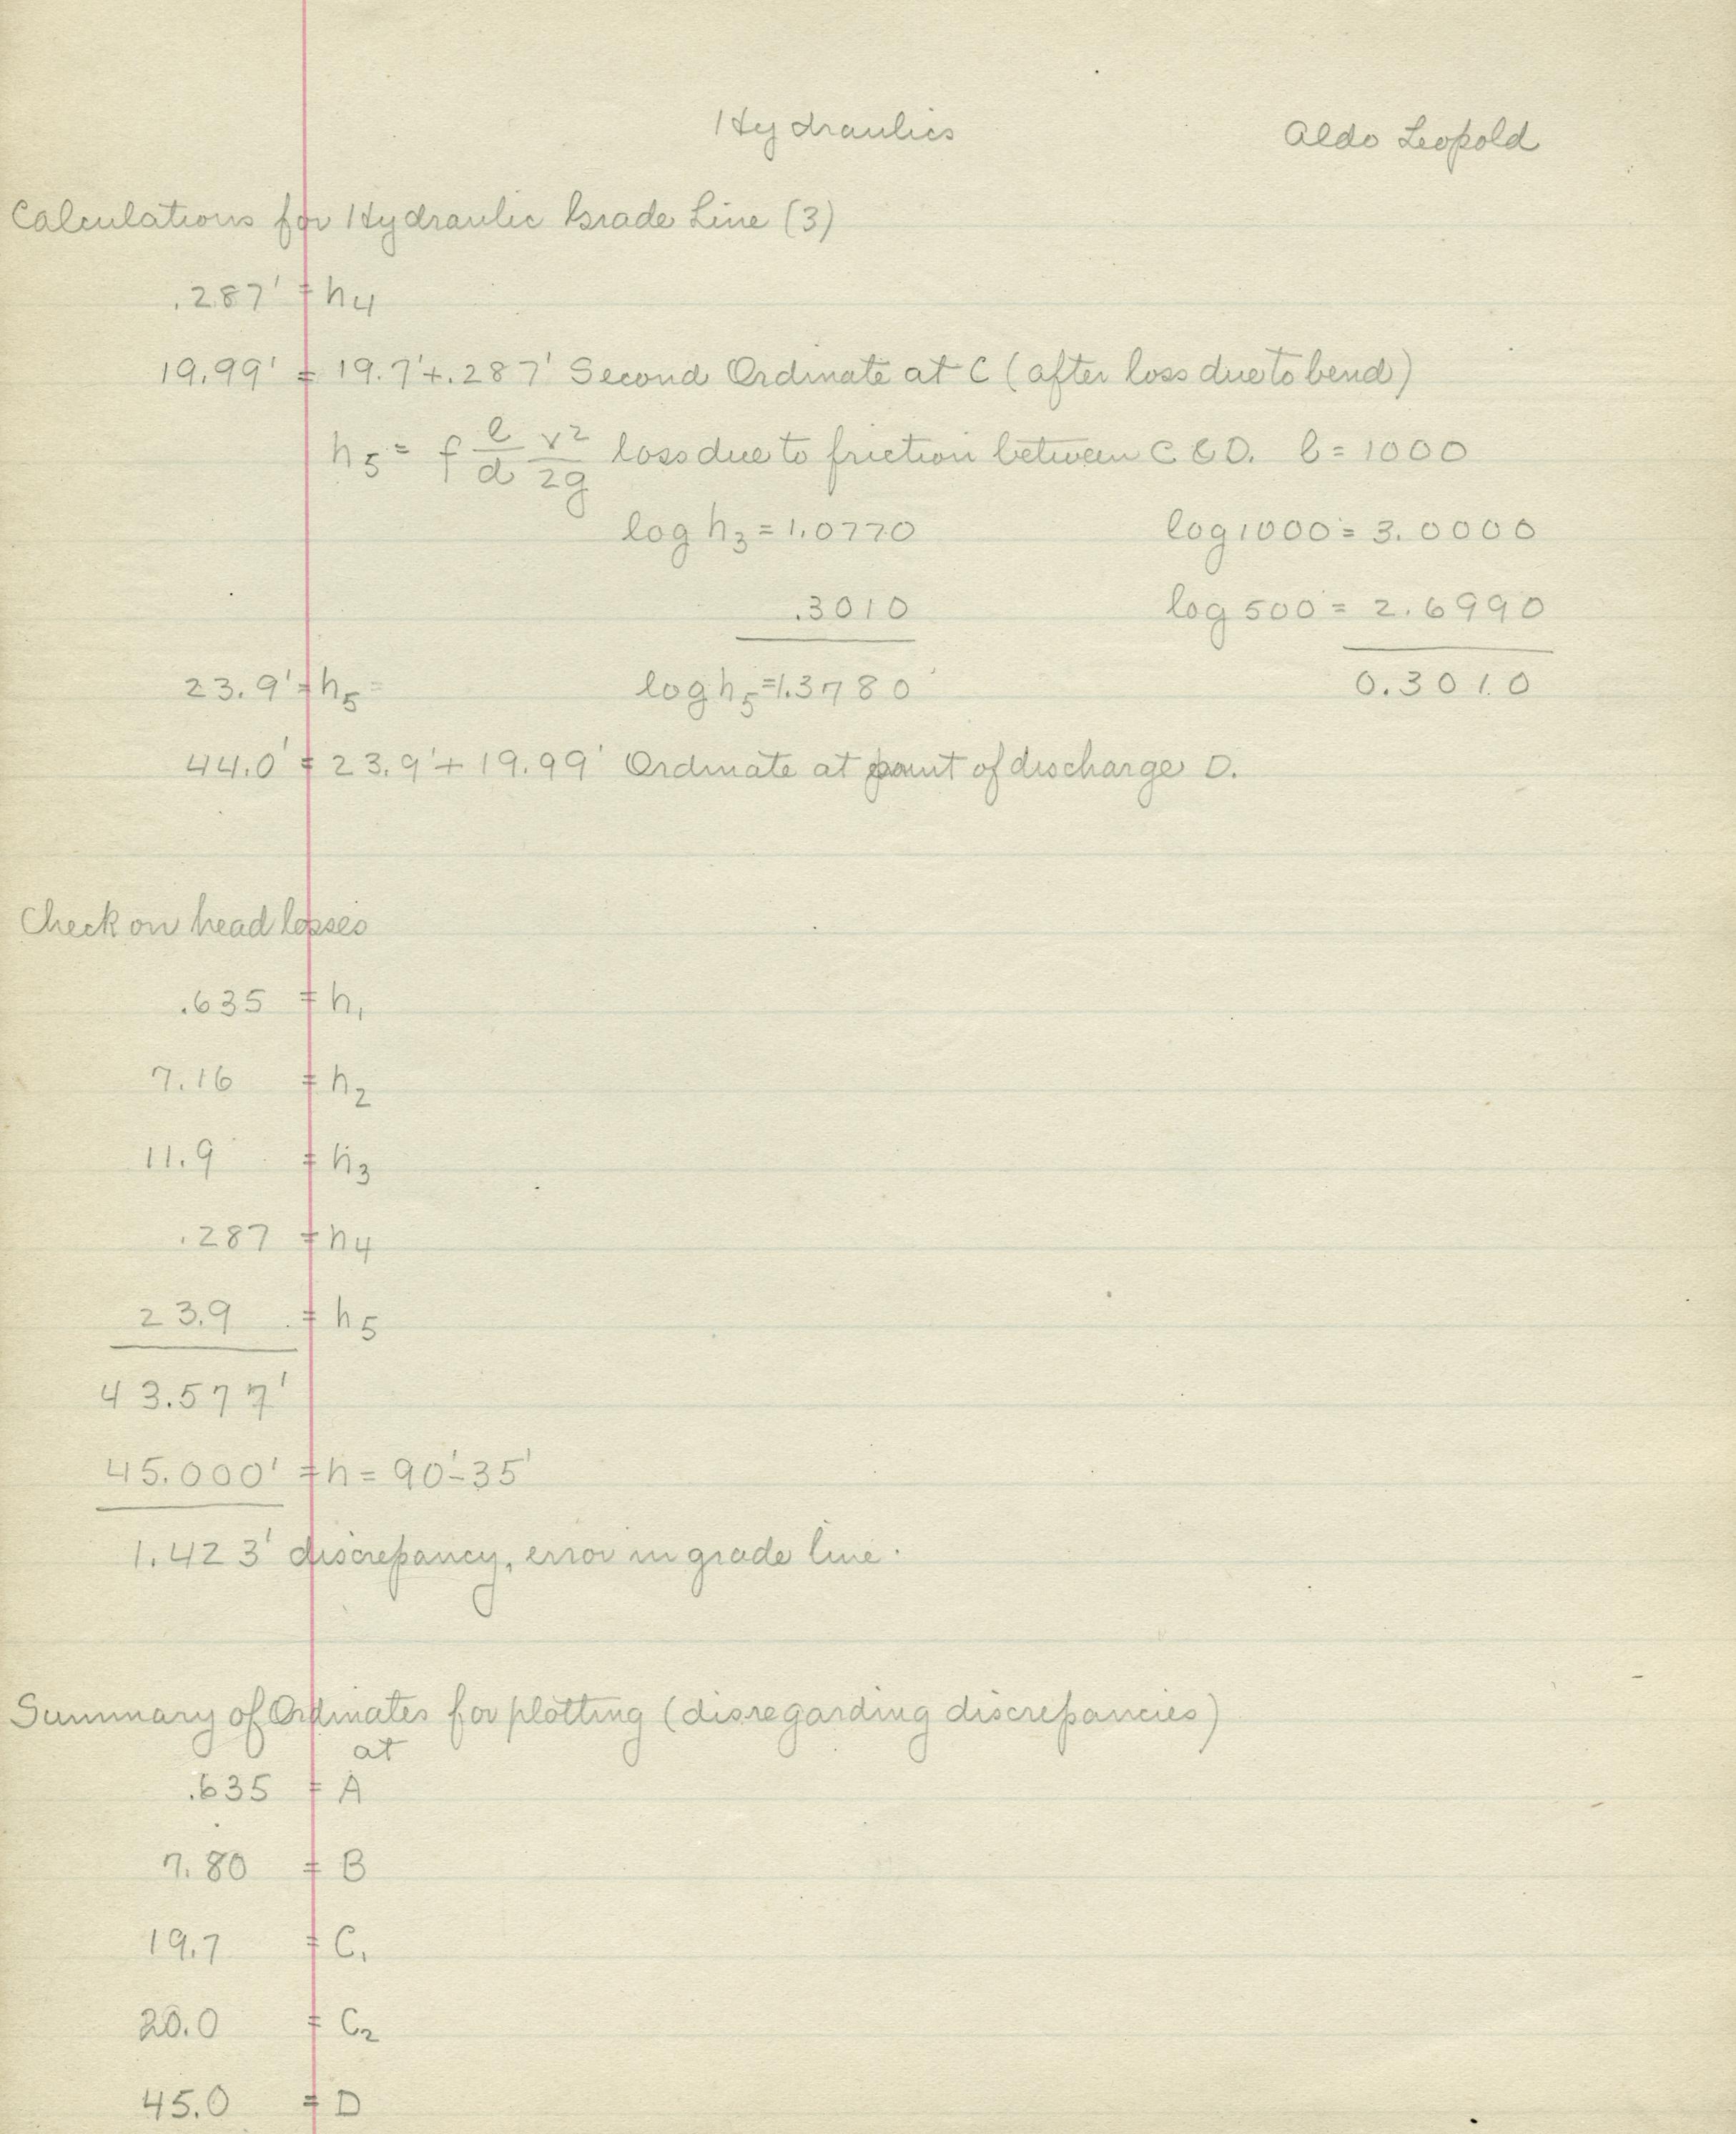 Hydraulics Aldo Leopold
Calculations for Hydraulic Grade Line (3)
.287' = h4
19.99' = 19.7'+.287' Second Ordinate at C (after loss due to bend)
h5 = f l/d v²/2g loss due to friction between C & D. l = 1000
log h3 = 1.0770 log 1000 = 3.0000
.3010 log 500 = 2.6990
23.9' = h5 = log h5 = 1.3780 0.3010
44.0' = 23.9' + 19.99' Ordinate at point of discharge D.
Check on head losses
.635 = h1
7.16 = h2
11.9 = h3
.287 = h4
23.9 = h5
43.577'
45.000' = h = 90'-35'
1.423' discrepancy, error in grade line.
Summary of Ordinates for plotting (disregarding discrepancies)
at
.635 = A
7.80 = B
19.7 = C1
20.0 = C2
45.0 = D